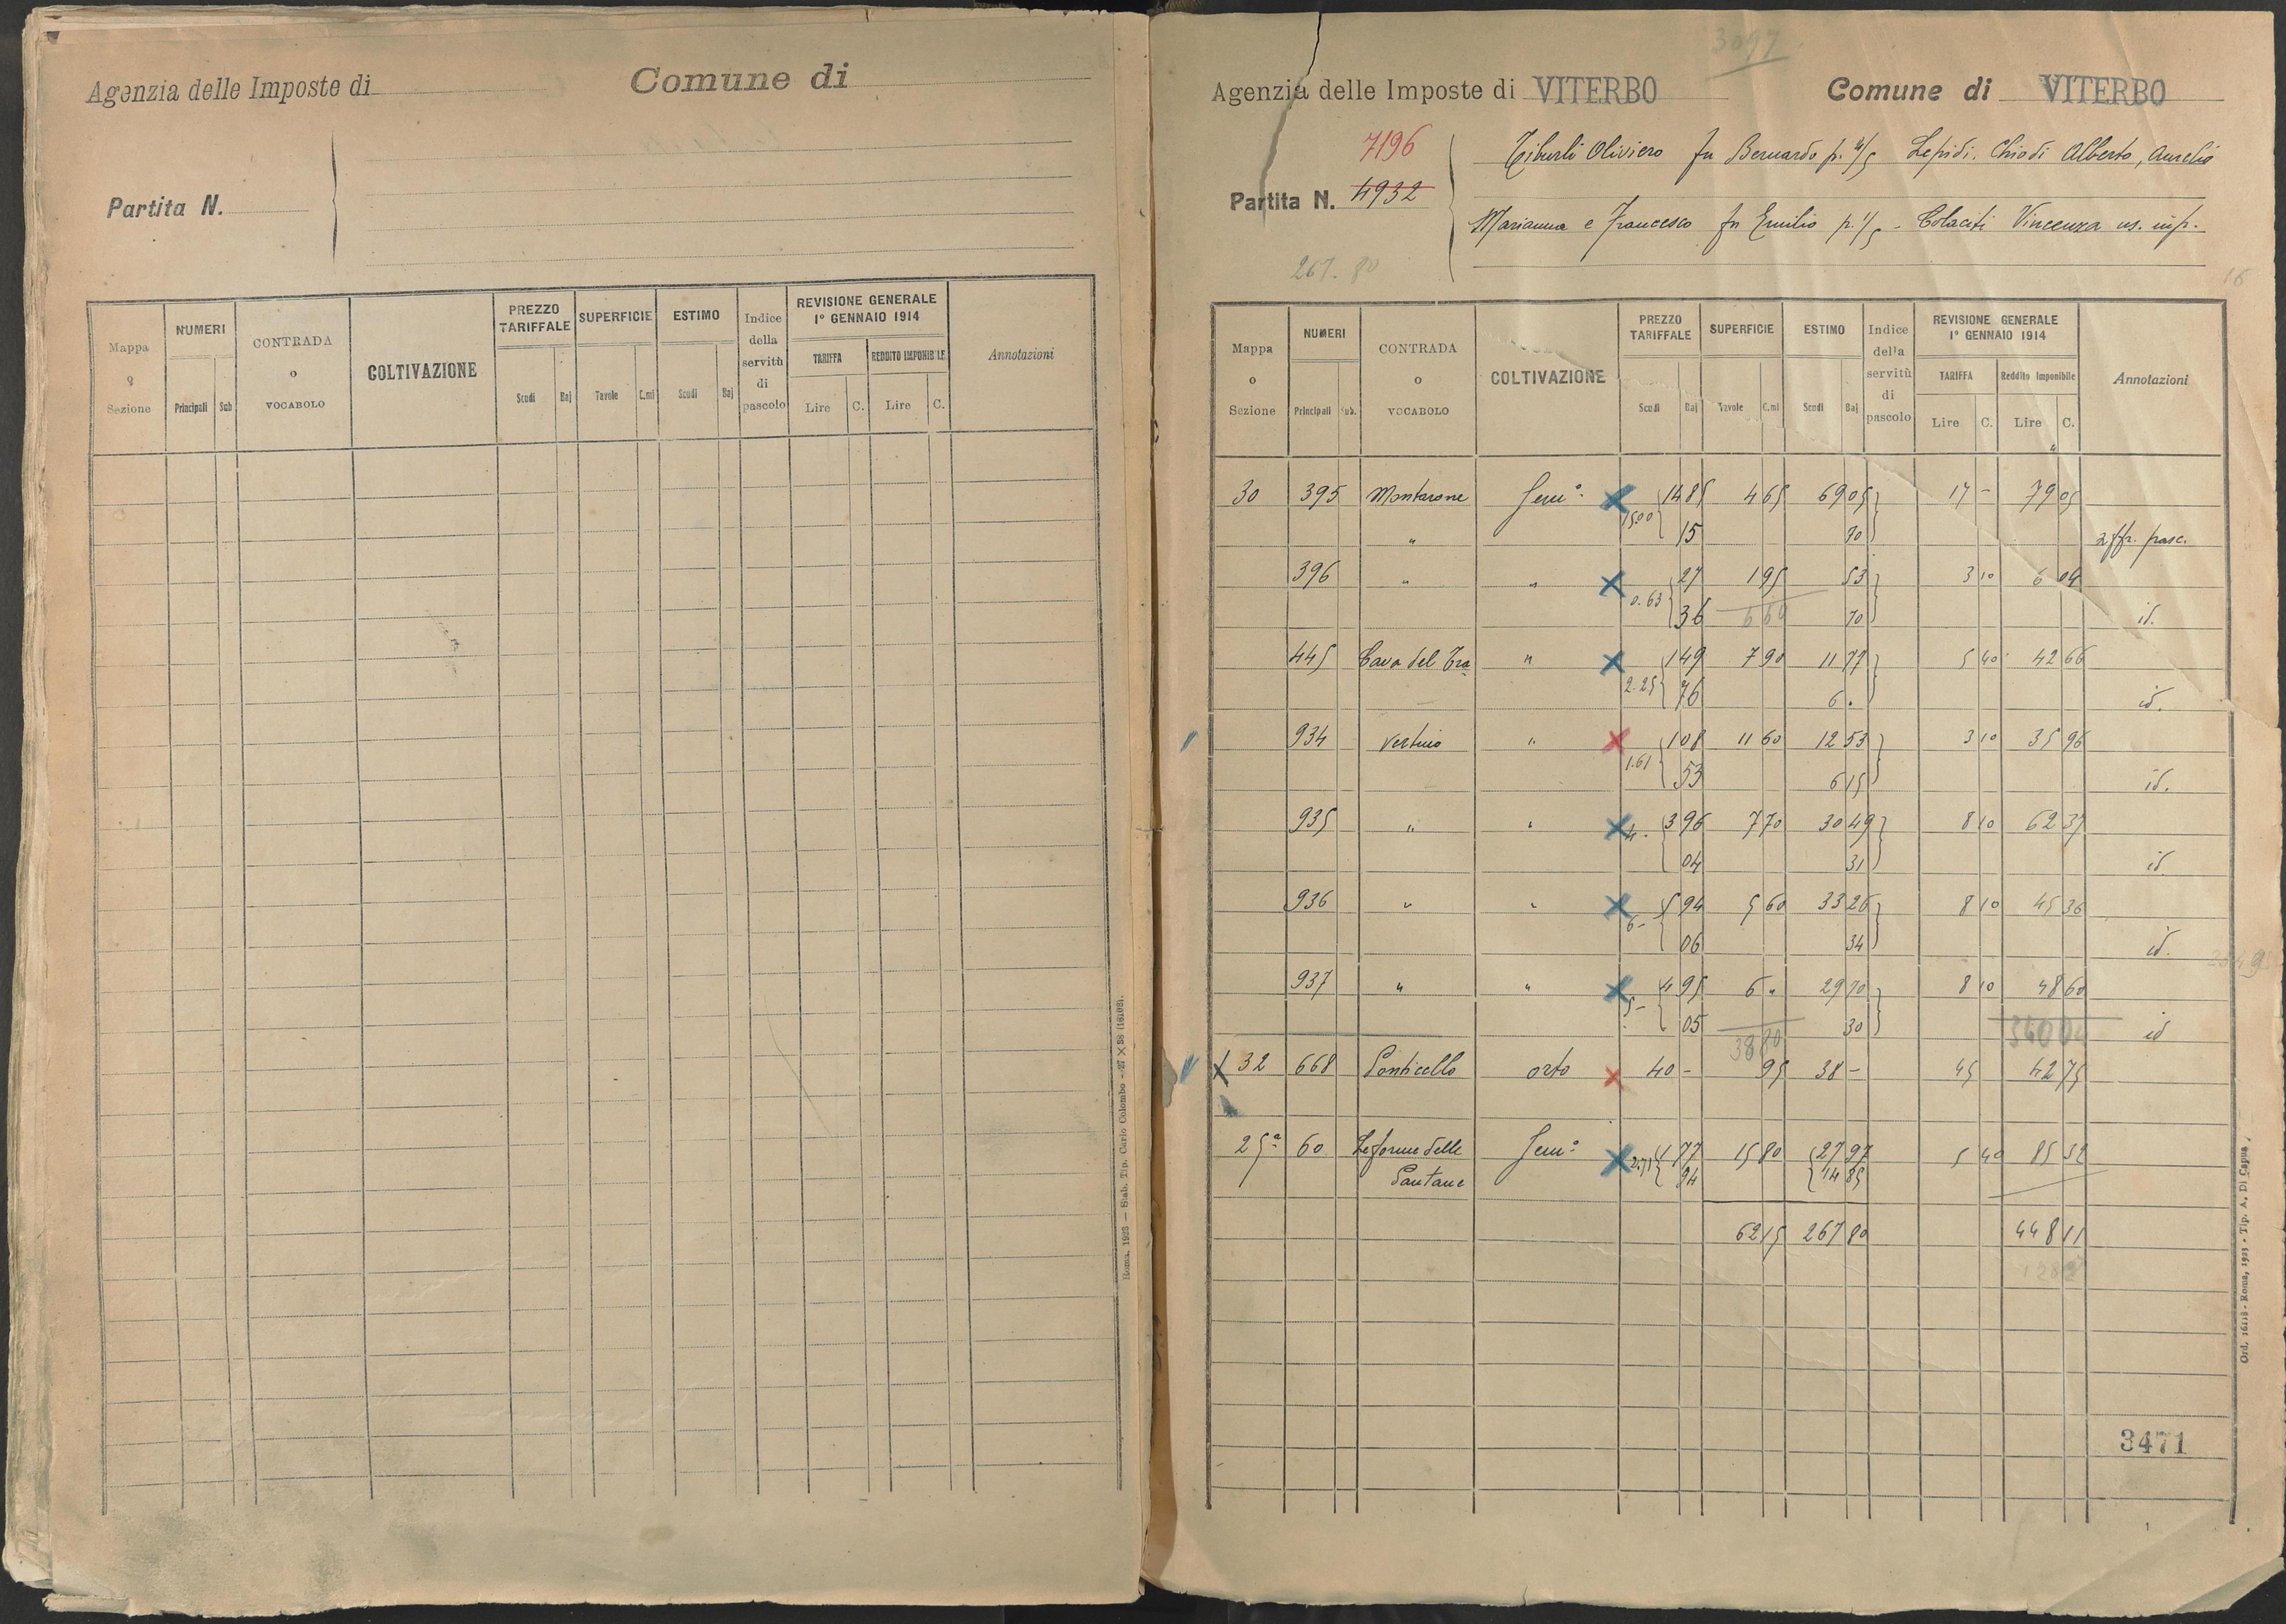 Agenzia delle Imposte di Comune di
Partita N.
Mappa o Sezione NUMERI Principali Sub CONTRADA o VOCABOLO COLTIVAZIONE PREZZO TARIFFALE Scudi Baj SUPERFICIE Tavole C.mi ESTIMO Scudi Baj Indice della servitù di pascolo REVISIONE GENERALE 1º GENNAIO 1914 TARIFFA Lire C. REDDITO IMPONIBILE Lire C. Annotazioni
Roma, 1923 — Stab. Tip. Carlo Colombo - 27 X 38 (16103).
3097
Agenzia delle Imposte di VITERBO Comune di VITERBO
7196
Partita N. 4932
Tiburli Oliviero fu Bernardo p. 4/5 Lepidi. Chiodi Alberto, Aurelio
Marianna e Francesco fu Emilio p. 1/5 - Colaceti Vincenza us. inp.
267.80
16
Mappa o Sezione NUMERI Principali Sub. CONTRADA o VOCABOLO COLTIVAZIONE PREZZO TARIFFALE Scudi Baj SUPERFICIE Tavole C.mi ESTIMO Scudi Baj Indice della servitù di pascolo REVISIONE GENERALE 1º GENNAIO 1914 TARIFFA Lire C. Reddito Imponibile Lire C. Annotazioni
30 395 Montarone Sem.º 14 85 4 65 69 05 17 - 79 05
" 15.00 15 70 affr. pasc.
396 " " 27 1 95 53 3 10 6 04
0.63 36 6 60 70 id.
445 Cava del Tra " 1 49 7 90 11 77 5 40 42 66
2.25 76 6 . id.
934 Vertuio " 1 08 11 60 12 53 3 10 35 96
1.61 53 6 15 id.
935 " " 4. 3 96 7 70 30 49 8 10 62 37
04 31 id
936 " " 6- 5 94 5 60 33 26 8 10 45 36
06 34 id.
937 " " 5- 4 95 6 " 29 70 8 10 48 60
05 38 80 30 340 04 id
32 668 Ponticello orto 40 - 95 38 - 45 42 75
25ª 60 Le forme delle Sem.º 2.71 1 77 15 80 27 97 5 40 85 32
Pantane 94 14 85
62 15 267 80 448 11
3471
Ord. 16118 - Roma, 1923 - Tip. A. Di Capua